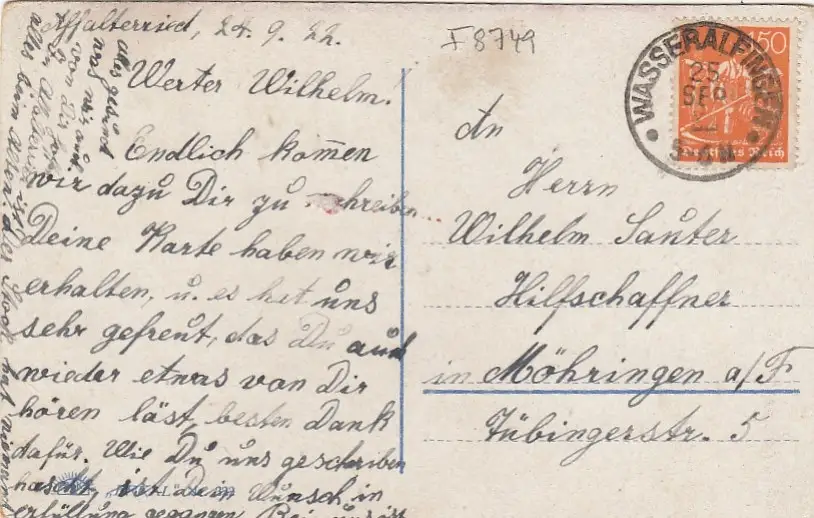 Affalterried, 24.9.22.
Werter Wilhelm.
Endlich kom̄en
wir dazu Dir zu schreiben
Deine Karte haben wir
erhalten, u. es hat uns
sehr gefreut, das Du auch
wieder etwas von Dir
hören läst, besten Dank
dafür. Wie Du uns geschrieben
hascht, ist Dein Wunsch in
erfüllung gegangen. Bei uns ist
alles beim Alten. der Stock hat
alles gesund
was wir auch
von dir
I 8749
WASSERALFINGEN
25
SEP
22
5-6 N
150
Deutsches Reich
An
Herrn
Wilhelm Sauter
Hilfschaffner
in Möhringen a/F
Tübingerstr. 5